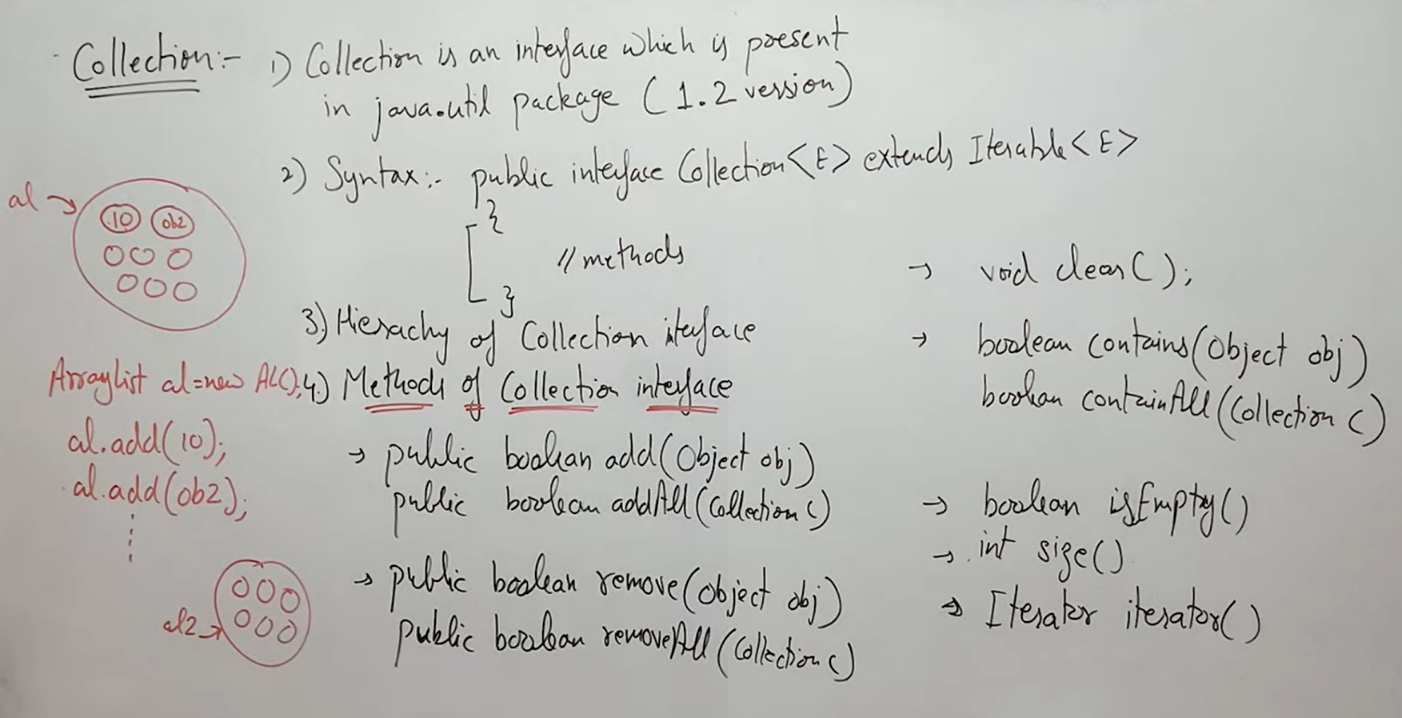 Collection:- 1) Collection is an interface which is present
in java.util package (1.2 version)
2) Syntax:- public interface Collection<E> extends Iterable<E>
{
// methods
}
3) Hierachy of Collection iterface
4.) Methods of Collection interface
→ public boolean add(Object obj)
public boolean addAll(Collection c)
→ public boolean remove(Object obj)
public boolean removeAll(Collection c)
→ void clear();
→ boolean contains(Object obj)
boolean containAll(Collection c)
→ boolean isEmpty()
→ int size()
→ Iterator iterator()
al →
10 ob2
Arraylist al=new AL();
al.add(10);
al.add(ob2);
al2 →